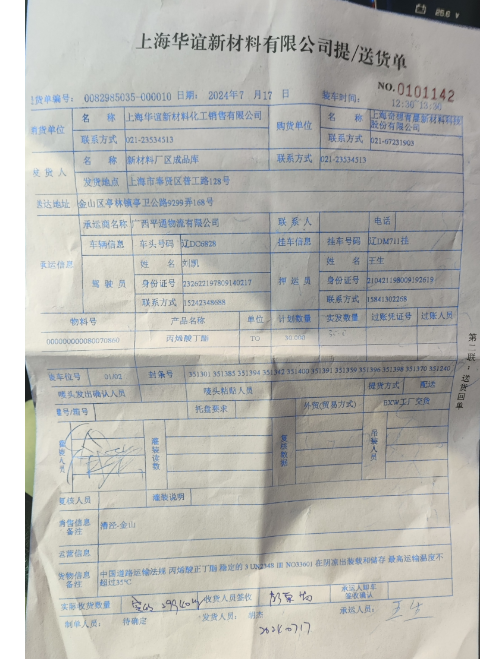 上海华谊新材料有限公司提/送货单
NO.0101142
提货单编号: 0082985035-000010 日期: 2024年7月17日 装车时间: 12:30
售货单位 名称 上海华谊新材料化工销售有限公司 购货单位 名称 股份有限公司
联系方式 021-23534513 联系方式 021-67231903
发货人 名称 新材料厂区成品库 联系方式 021-23534513
发货地点 上海市奉贤区普工路128号
送达地址 金山区亭林镇亭卫公路9299弄168号
承运信息 承运商名称 广西平通物流有限公司 联系人 电话
车辆信息 车头号码 辽DC6828 挂车信息 挂车号码 辽DM711挂
驾驶员 姓名 刘凯 押运员 姓名 王生
身份证号 232622197809140217 身份证号 210421198009192618
联系方式 15242348688 联系方式 15841302268
物料号 产品名称 单位 计划数量 实发数量 过账凭证号 过账人员
丙烯酸丁酯 TO 30.000
装车位号 01/02 封条号 351301 351385 351394 351342 351400 351391 351359 351396 351398 351370 351240
唛头发出确认人员 唛头粘贴人员 提货方式 配送
箱号/船号 托盘要求 外贸(贸易方式) EXW工厂交货
灌装读数 复核数据 吊装人员
复核人员 灌装说明
身份信息备注 漕泾-金山
运营信息
货物信息备注 中国道路运输法规 丙烯酸正丁酯 稳定的 3 UN2348 III NO3360) 在阴凉出装载和储存 最高运输温度不超过35℃
实际收货数量 收货人员签收 承运人卸车签收确认
制单人员: 待确定 发货人员: 胡杰 承运人员: 王生
2024.07.17
第二联:送货回单